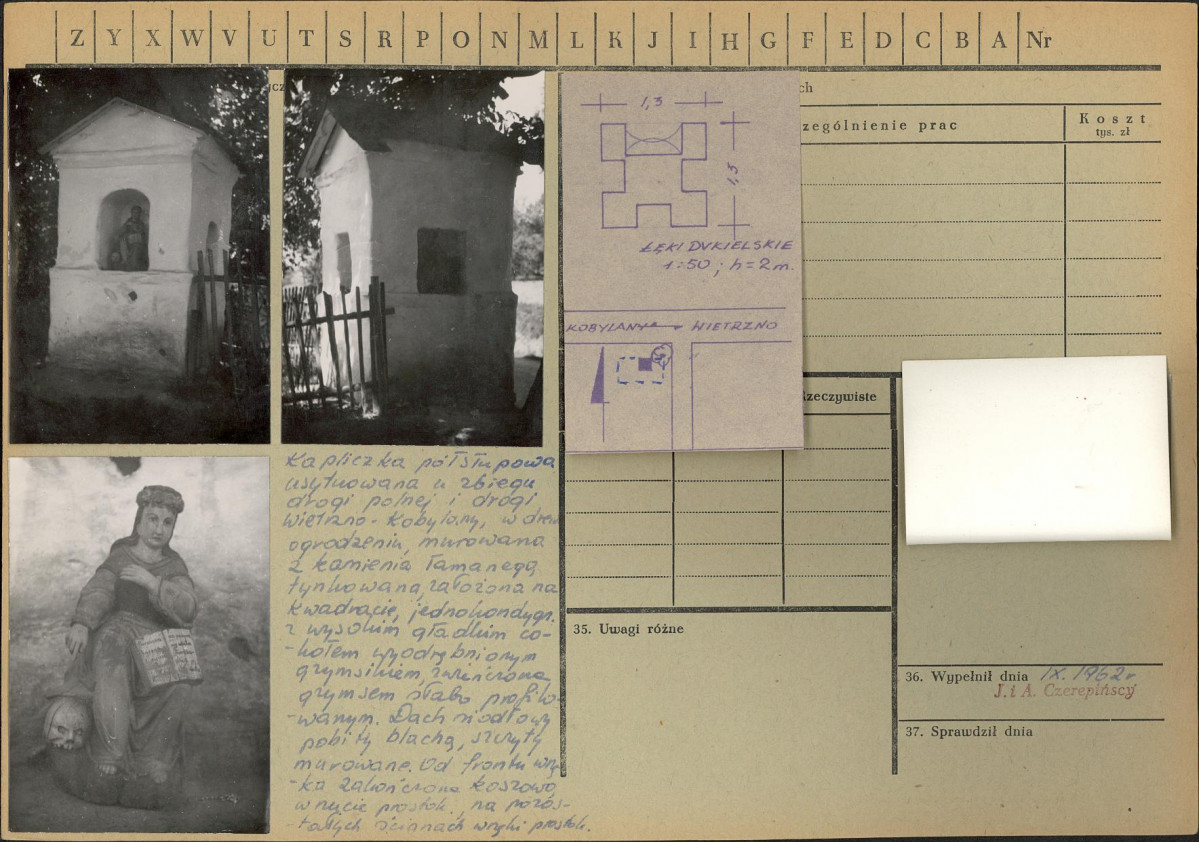 Z Y X W V U T S R P O N M L K J I H G F E D C B A Nr
cz
ch
zególnienie prac
Koszt
tys. zł
1,3
1,3
ŁĘKI DUKIELSKIE
1:50 ; h=2m.
KOBYLANY WIETRZNO
Rzeczywiste
Kapliczka półsłupowa
usytuowana u zbiegu
drogi polnej i drogi
Wietrzno-Kobylany, w drew
ogrodzeniu, murowana
z kamienia łamanego
tynkowana, założona na
kwadracie, jednokondygn.
z wysokim gładkim co-
-kołem wyodrębnionym
gzymsikiem, zwieńczona
gzymsem słabo profilo-
-wanym. Dach siodłowy
pobity blachą, szczyty
murowane. Od frontu wnę-
-ka zakończona koszowo,
w rzucie prostok., na pozos-
-tałych ścianach wnęki prostok.
35. Uwagi różne
36. Wypełnił dnia IX. 1962 r
J. i A. Czerepińscy
37. Sprawdził dnia